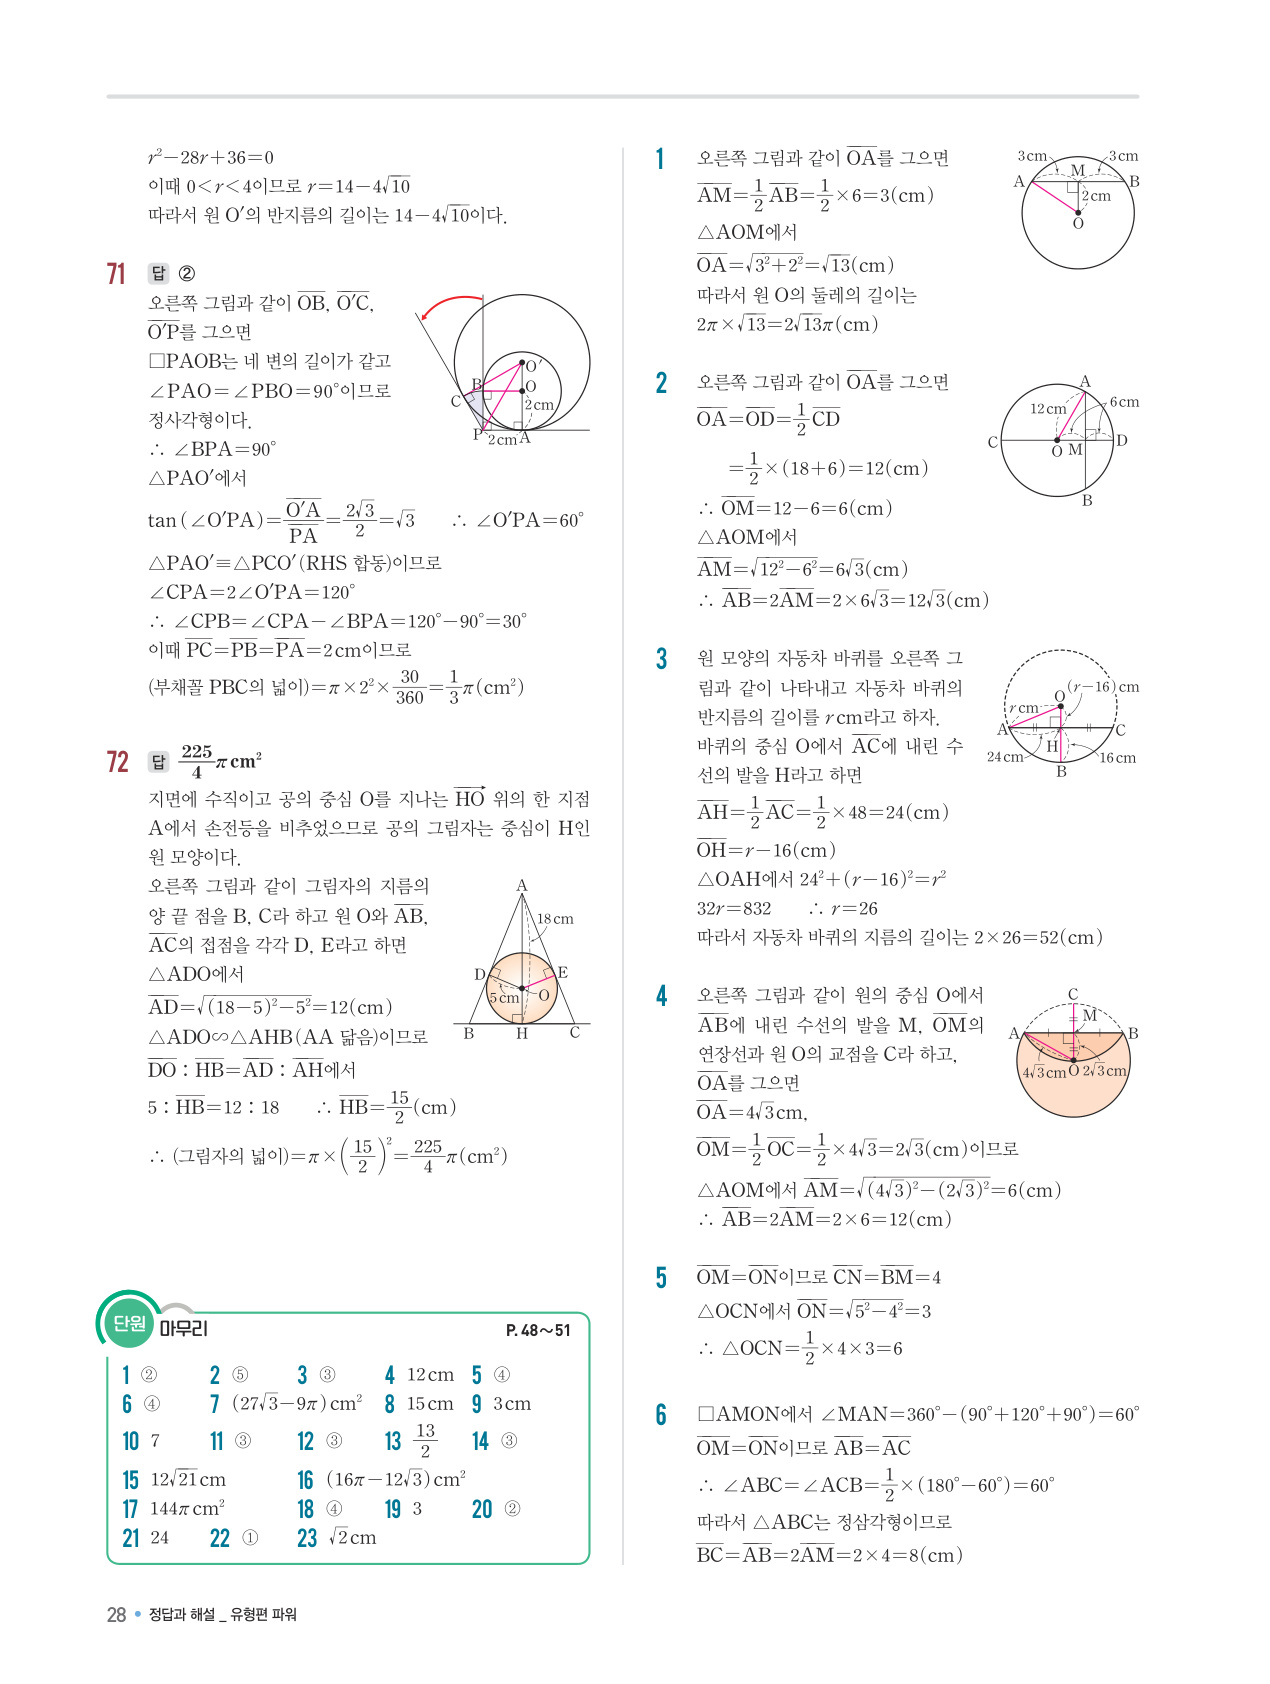 r²−28r+36=0
이때 0<r<4이므로 r=14−4√10
따라서 원 O′의 반지름의 길이는 14−4√10이다.
71 답 ②
오른쪽 그림과 같이 OB, O′C,
O′P를 그으면
□PAOB는 네 변의 길이가 같고
∠PAO=∠PBO=90°이므로
정사각형이다.
∴ ∠BPA=90°
△PAO′에서
tan(∠O′PA)=O′A/PA=2√3/2=√3 ∴ ∠O′PA=60°
△PAO′≡△PCO′(RHS 합동)이므로
∠CPA=2∠O′PA=120°
∴ ∠CPB=∠CPA−∠BPA=120°−90°=30°
이때 PC=PB=PA=2cm이므로
(부채꼴 PBC의 넓이)=π×2²×30/360=1/3π(cm²)
O′
B
O
C
2cm
P
2cm
A
72 답 225/4 π cm²
지면에 수직이고 공의 중심 O를 지나는 HO 위의 한 지점
A에서 손전등을 비추었으므로 공의 그림자는 중심이 H인
원 모양이다.
오른쪽 그림과 같이 그림자의 지름의
양 끝 점을 B, C라 하고 원 O와 AB,
AC의 접점을 각각 D, E라고 하면
△ADO에서
AD=√(18−5)²−5²=12(cm)
△ADO∽△AHB(AA 닮음)이므로
DO : HB=AD : AH에서
5 : HB=12 : 18 ∴ HB=15/2(cm)
∴ (그림자의 넓이)=π×(15/2)²=225/4π(cm²)
A
18cm
D
E
5cm
O
B
H
C
단원 마무리 P. 48~51
1 ② 2 ⑤ 3 ③ 4 12cm 5 ④
6 ④ 7 (27√3−9π)cm² 8 15cm 9 3cm
10 7 11 ③ 12 ③ 13 13/2 14 ③
15 12√21cm 16 (16π−12√3)cm²
17 144πcm² 18 ④ 19 3 20 ②
21 24 22 ① 23 √2cm
1 오른쪽 그림과 같이 OA를 그으면
AM=1/2AB=1/2×6=3(cm)
△AOM에서
OA=√3²+2²=√13(cm)
따라서 원 O의 둘레의 길이는
2π×√13=2√13π(cm)
3cm
3cm
M
A
B
2cm
O
2 오른쪽 그림과 같이 OA를 그으면
OA=OD=1/2CD
=1/2×(18+6)=12(cm)
∴ OM=12−6=6(cm)
△AOM에서
AM=√12²−6²=6√3(cm)
∴ AB=2AM=2×6√3=12√3(cm)
A
12cm
6cm
C
O
M
D
B
3 원 모양의 자동차 바퀴를 오른쪽 그
림과 같이 나타내고 자동차 바퀴의
반지름의 길이를 rcm라고 하자.
바퀴의 중심 O에서 AC에 내린 수
선의 발을 H라고 하면
AH=1/2AC=1/2×48=24(cm)
OH=r−16(cm)
△OAH에서 24²+(r−16)²=r²
32r=832 ∴ r=26
따라서 자동차 바퀴의 지름의 길이는 2×26=52(cm)
O
(r−16)cm
rcm
A
C
H
24cm
16cm
B
4 오른쪽 그림과 같이 원의 중심 O에서
AB에 내린 수선의 발을 M, OM의
연장선과 원 O의 교점을 C라 하고,
OA를 그으면
OA=4√3cm,
OM=1/2OC=1/2×4√3=2√3(cm)이므로
△AOM에서 AM=√(4√3)²−(2√3)²=6(cm)
∴ AB=2AM=2×6=12(cm)
C
M
A
B
4√3cm
O
2√3cm
5 OM=ON이므로 CN=BM=4
△OCN에서 ON=√5²−4²=3
∴ △OCN=1/2×4×3=6
6 □AMON에서 ∠MAN=360°−(90°+120°+90°)=60°
OM=ON이므로 AB=AC
∴ ∠ABC=∠ACB=1/2×(180°−60°)=60°
따라서 △ABC는 정삼각형이므로
BC=AB=2AM=2×4=8(cm)
28 • 정답과 해설 _ 유형편 파워